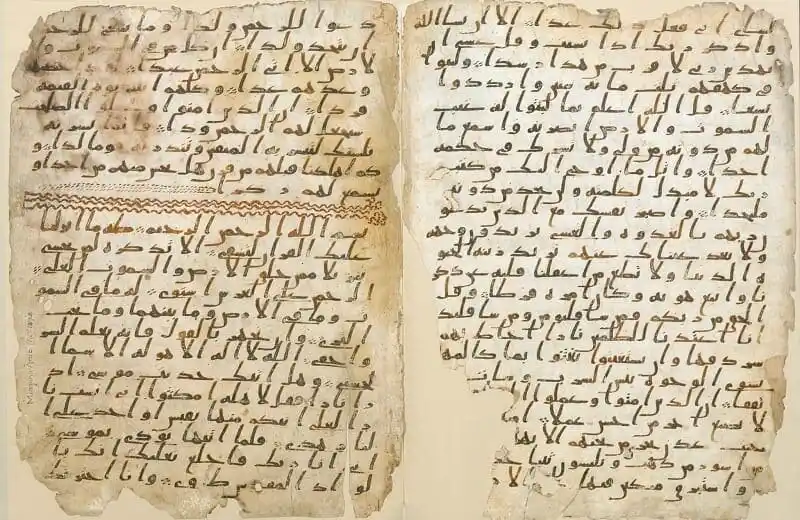 لشاى انى فعل ذلك غدا الا ان يشا الله
واذكر ربك اذا نسيت وقل عسى ان
يهدين ربى لاقرب من هذا رشدا ولبثوا
فى كهفهم ثلث مايه سنين وازدادوا
تسعا قل الله اعلم بما لبثوا له غيب
السموت والارض ابصر به واسمع ما
لهم من دونه من ولى ولا يشرك فى حكمه
احدا واتل ما اوحى اليك من كتب
ربك لا مبدل لكلمته ولن تجد من دونه
ملتحدا واصبر نفسك مع الذين يدعو
ن ربهم بالغدوه والعشى يريدون وجهه
ولا تعد عيناك عنهم تريد زينه الحيو
ه الدنيا ولا تطع من اغفلنا قلبه عن ذكر
نا واتبع هويه وكان امره فرطا وقل
الحق من ربكم فمن شا فليومن ومن شا فليكفر
انا اعتدنا للظلمين نارا احاط بهم
سردقها وان يستغيثوا يغثوا بما كالمهل
يشوى الوجوه بيس الشرب وسات
تفقا ان الذين امنوا وعملوا
لا نضيع اجر من احسن عملا
جنت عدن تجرى من تحتهم الانهر
من اسور من ذهب ويلبسون ثيابا
واستبرق متكين فيها الار
دعوا للرحمن ولدا وما ينبغى للرحمن
ان يتخذ ولدا ان كل من فى السموت وا
لارض الا اتى الرحمن عبدا لقد احصيهم
وعدهم عدا وكلهم اتيه يوم القيمه
فردا ان الذين امنوا وعملوا الصلحت
سيجعل لهم الرحمن ودا فانما يسرنه
بلسنك لتبشر به المتقين وتنذر به قوما لدا و
كم اهلكنا قبلهم من قرن هل تحس منهم من احد او
تسمع لهم ركزا
بسم الله الرحمن الرحيم طه ما انزلنا
عليك القران لتشقى الا تذكره لمن يخشى
تنزيلا ممن خلق الارض والسموت العلى
الرحمن على العرش استوى له ما فى السمو
ت وما فى الارض وما بينهما وما تحت
الثرى وان تجهر بالقول فانه يعلم السر
واخفى الله لا اله الا هو له الاسما ا
لحسنى وهل اتيك حديث موسى اذ
را نارا فقل لاهله امكثوا انى انست نا
را لعلى اتيكم منها بقبس او اجد على ا
لنار هدى فلما اتيها نودى يموسى
انى انا ربك فاخلع نعليك انك با
لواد المقدس طوى وانا اخترتك